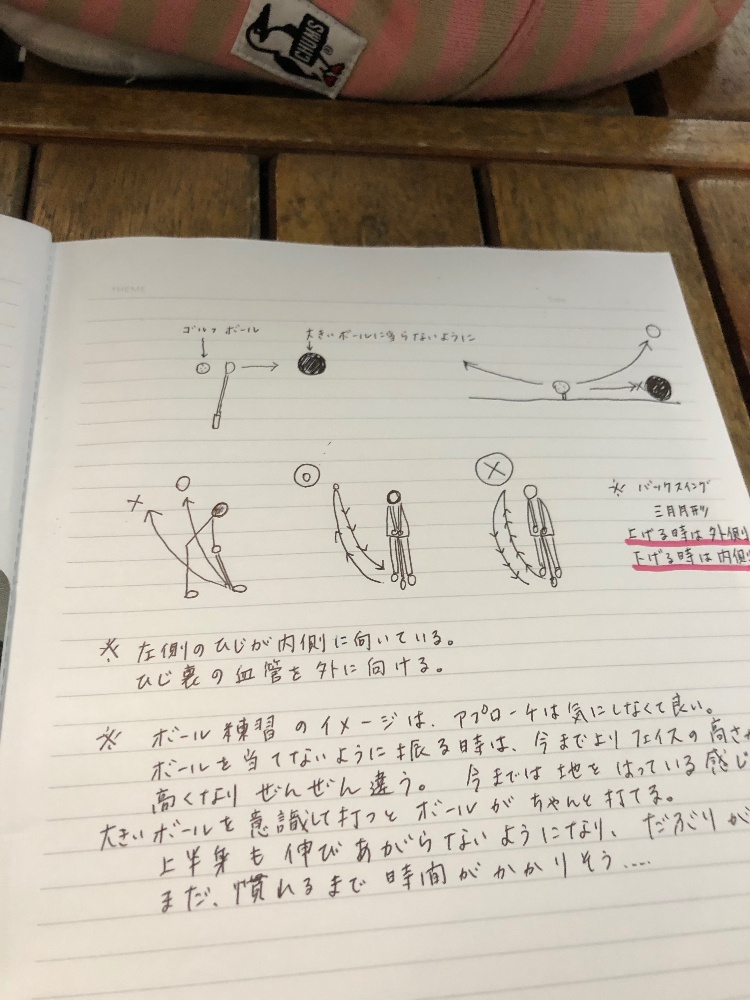 CHUMS
ゴルフボール
大きいボールに当らないように
※ バックスイング
三日月形
上げる時は外側
下げる時は内側
※ 左側のひじが内側に向いている。
ひじ裏の血管を外に向ける。
※ ボール練習のイメージは、アプローチは気にしなくて良い。
ボールを当てないように振る時は、今までよりフェイスの高さが
高くなりぜんぜん違う。 今までは地をはっている感じ
大きいボールを意識して打つとボールがちゃんと打てる。
上半身も伸びあがらないようになり、だふりが
まだ、慣れるまで時間がかかりそう....